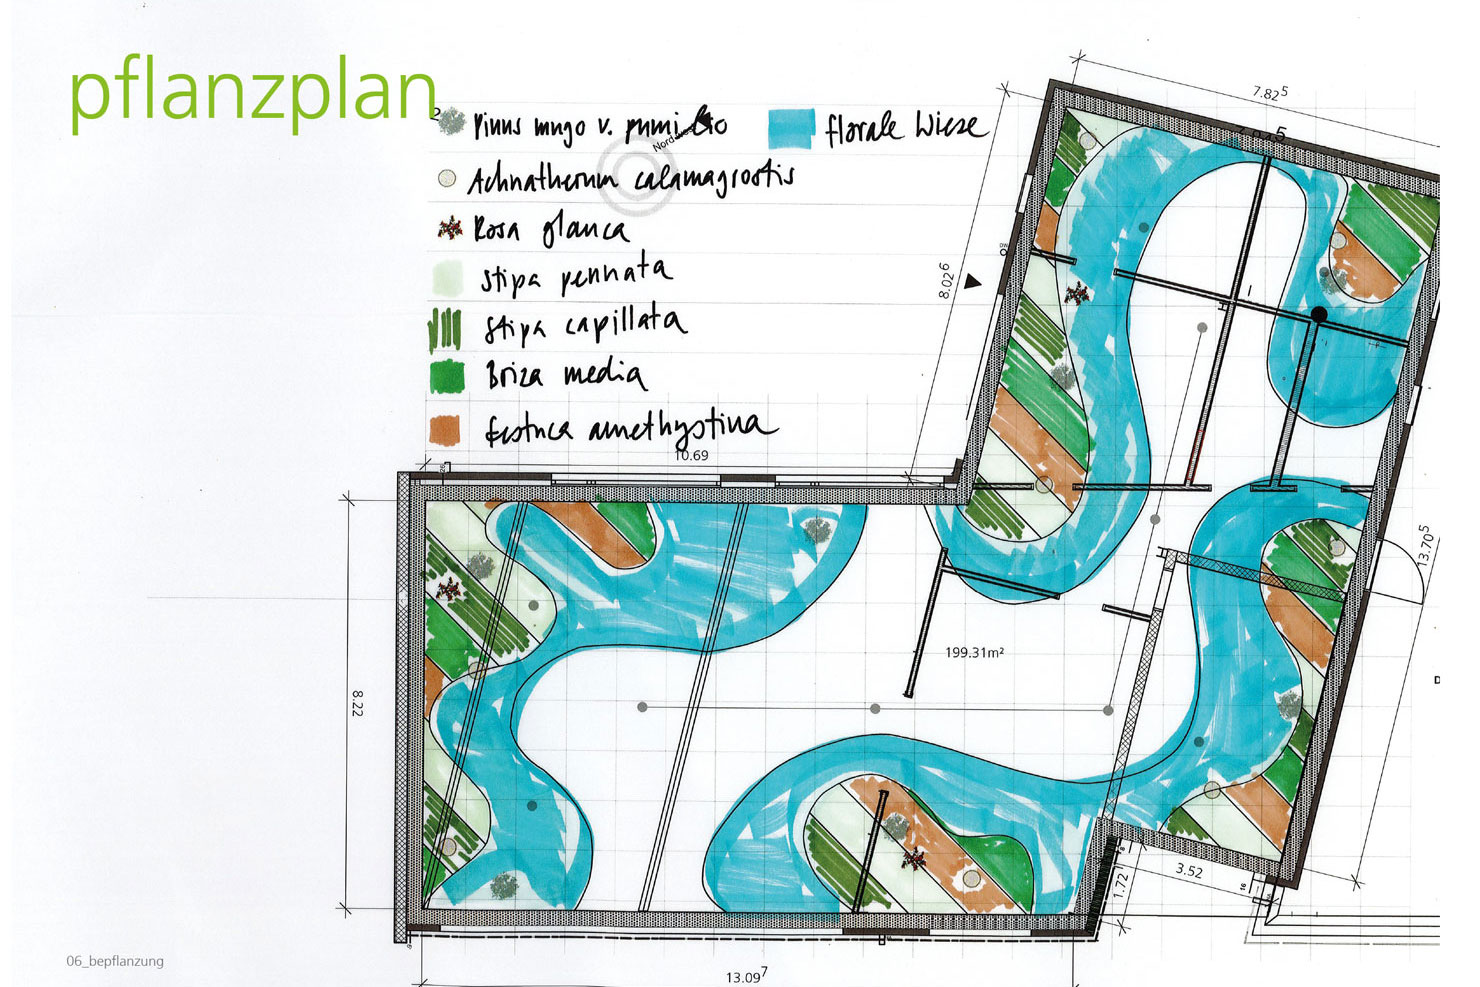 pflanzplan
Pinus mugo v. pumilio
florale Wiese
Achnatherum calamagrostis
Rosa glauca
Stipa pennata
Stipa capillata
Briza media
festuca amethystina
7.82⁵
8.02⁶
10.69
13.70⁵
8.22
199.31m²
3.52
1.72
13.09⁷
06_bepflanzung